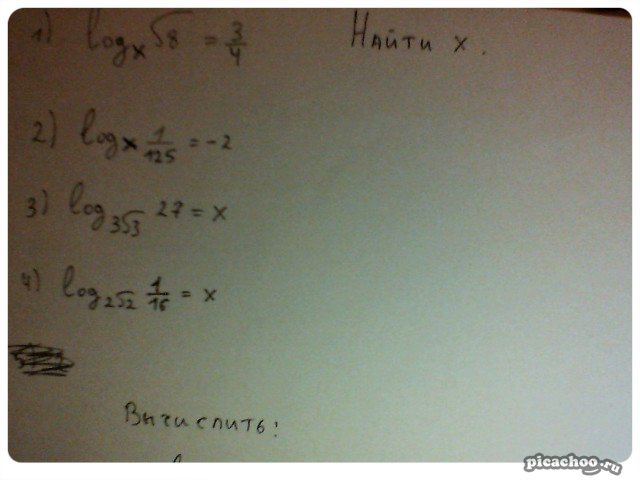 1) log_x √8 = 3/4 Найти x.
2) log_x 1/125 = -2
3) log_{3√3} 27 = x
4) log_{2√2} 1/16 = x
Вычислить:
picachoo.ru